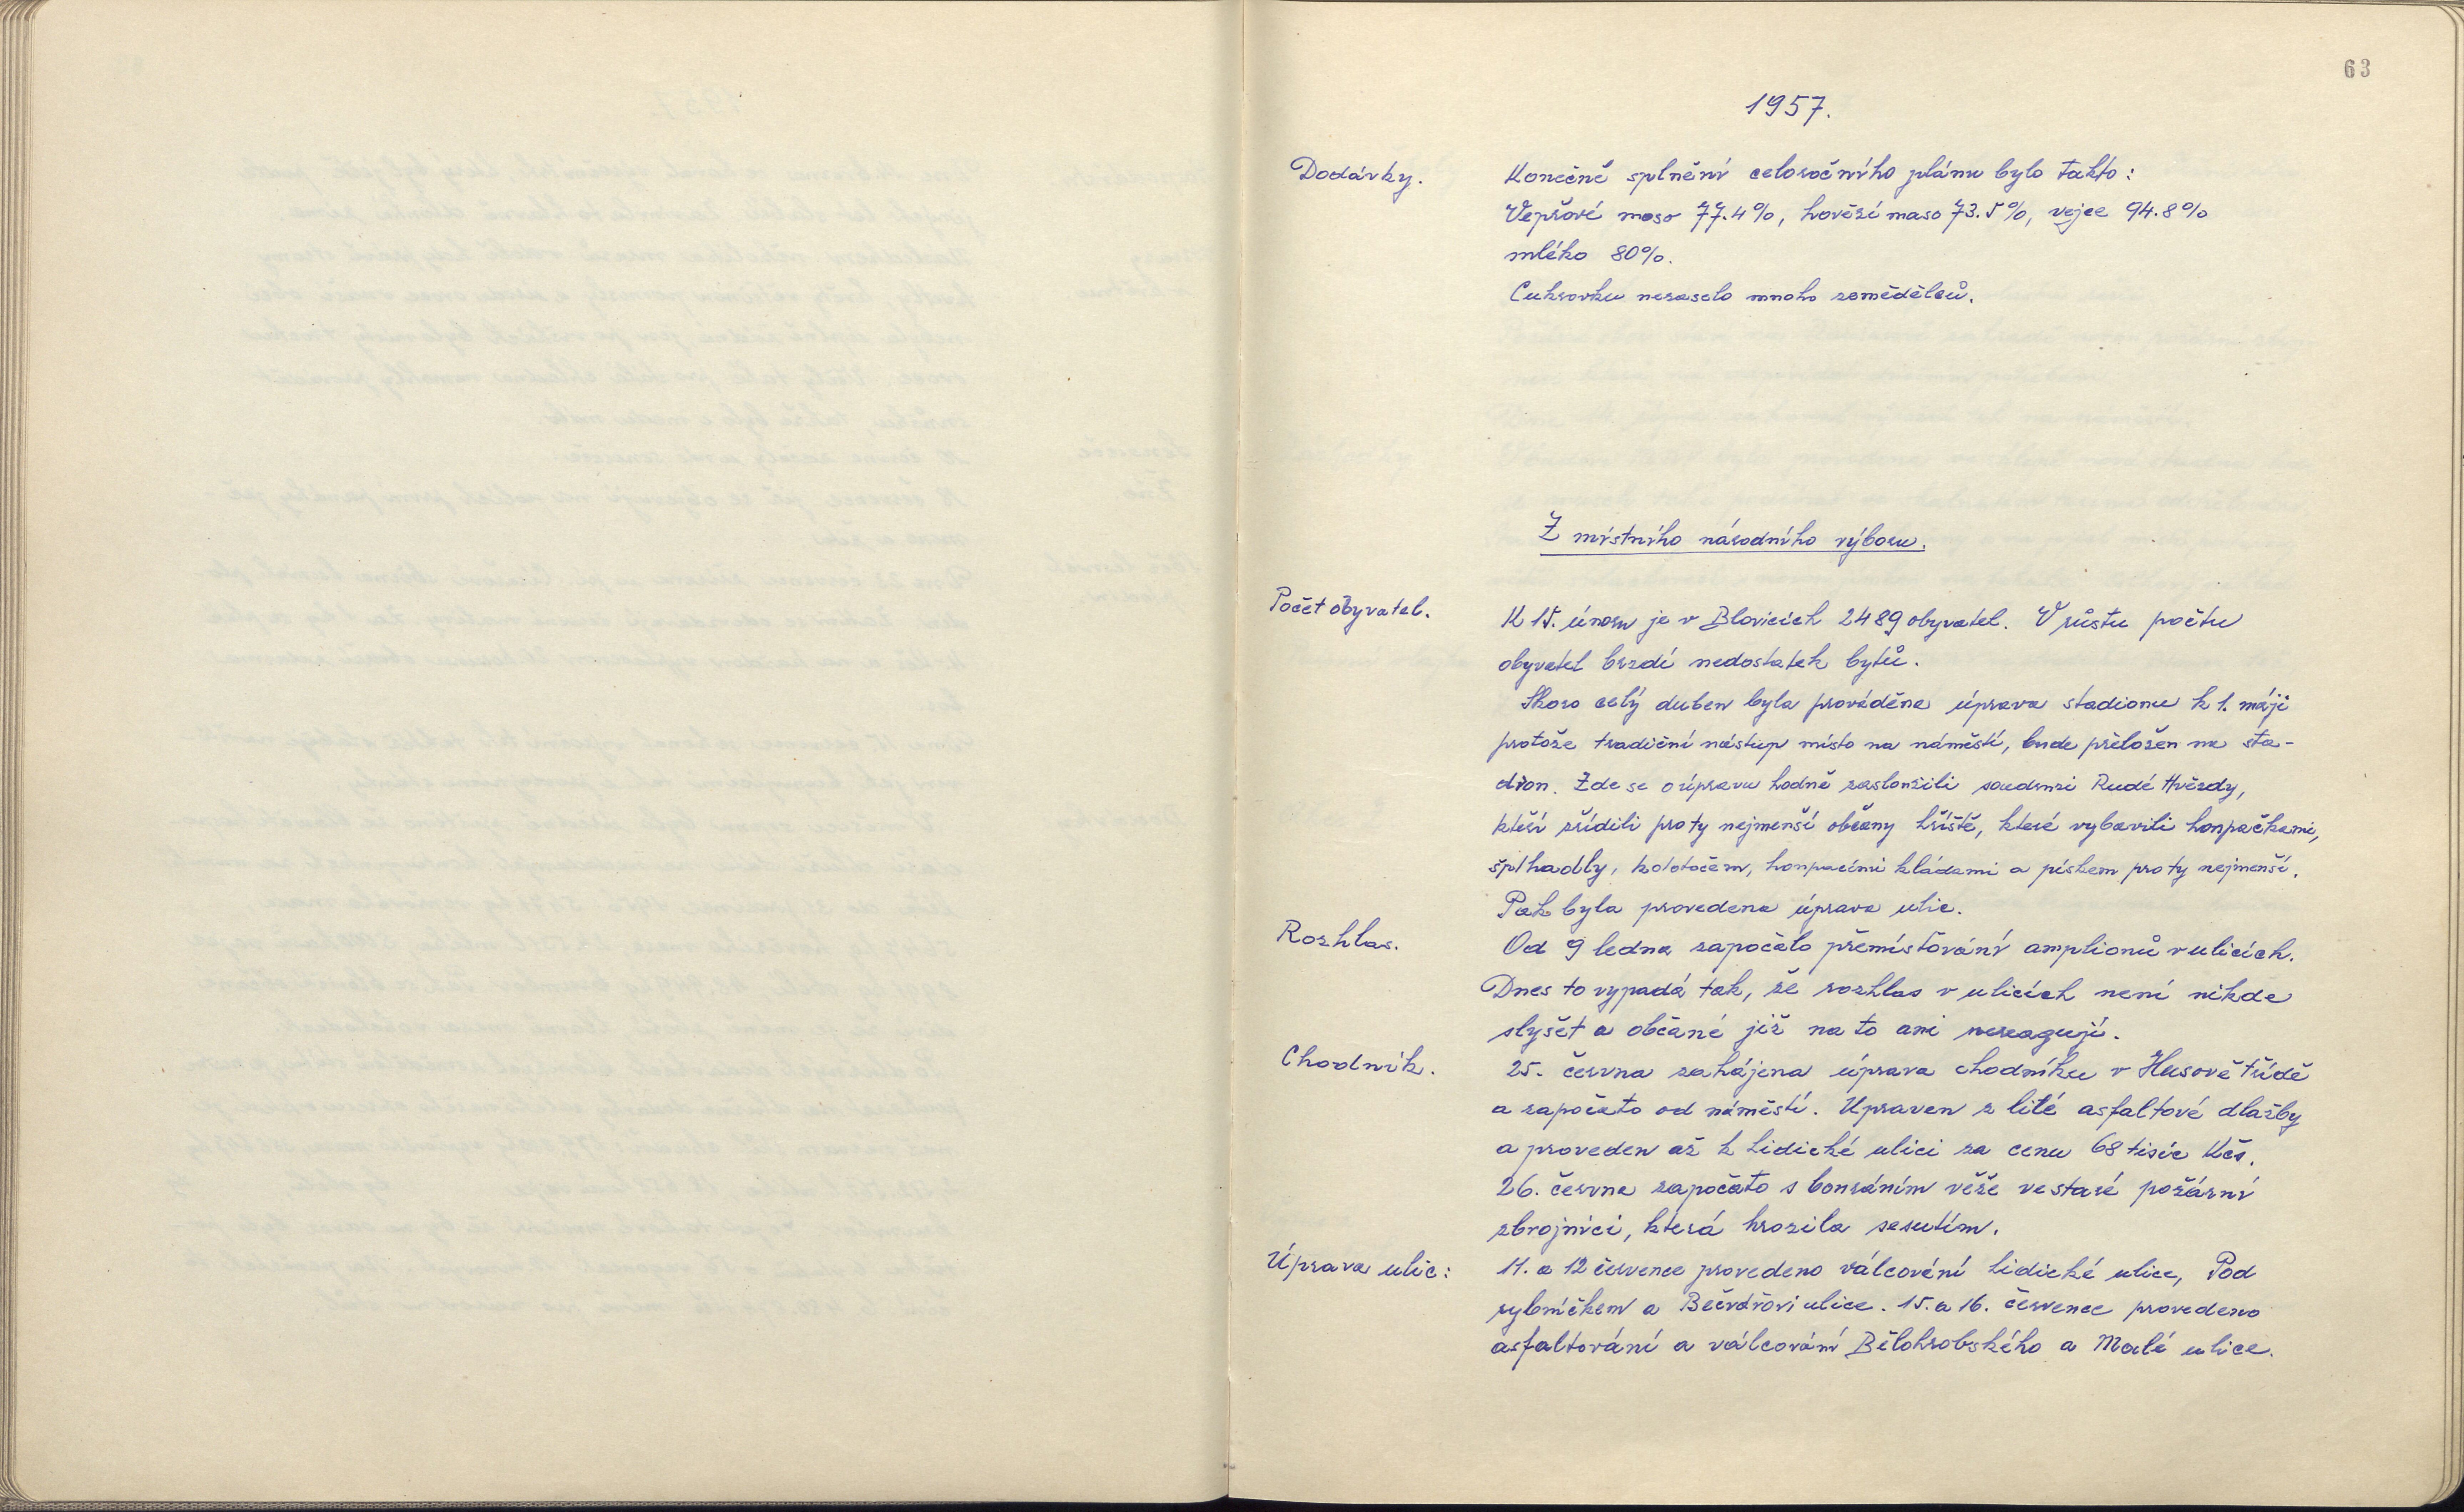 63
1957.
Dodávky.
Konečné splnění celoročního plánu bylo takto:
Vepřové maso 77.4%, hovězí maso 73.5%, vejce 94.8%
mléko 80%.
Cukrovku nezaselo mnoho zemědělců.
Z místního národního výboru.
Počet obyvatel.
K 15. únoru je v Blovicích 2489 obyvatel. V růstu počtu
obyvatel brzdí nedostatek bytů.
Skoro celý duben byla prováděna úprava stadionu k 1. máji
protože tradiční nástup místo na náměstí, bude přeložen na sta-
dion. Zde se o úpravu hodně zasloužili soudruzi Rudé Hvězdy,
kteří zřídili pro ty nejmenší občany hřiště, které vybavili houpačkami,
šplhadly, kolotočem, houpacími kládami a pískem pro ty nejmenší.
Pak byla provedena úprava ulic.
Rozhlas.
Od 9 ledna započalo přemísťování amplionů v ulicích.
Dnes to vypadá tak, že rozhlas v ulicích není nikde
slyšet a občané již na to ani nereagují.
Chodník.
25. června zahájena úprava chodníku v Husově třídě
a započato od náměstí. Upraven z lité asfaltové dlažby
a proveden až k Lidické ulici za cenu 68 tisíc Kčs.
26. června započato s bouráním věže ve staré požární
zbrojnici, která hrozila sesutím.
Úprava ulic:
11. a 12 července provedeno válcování Lidické ulice, Pod
rybníčkem a ulice. 15. a 16. července provedeno
asfaltování a válcování Bělohrobského a Malé ulice.